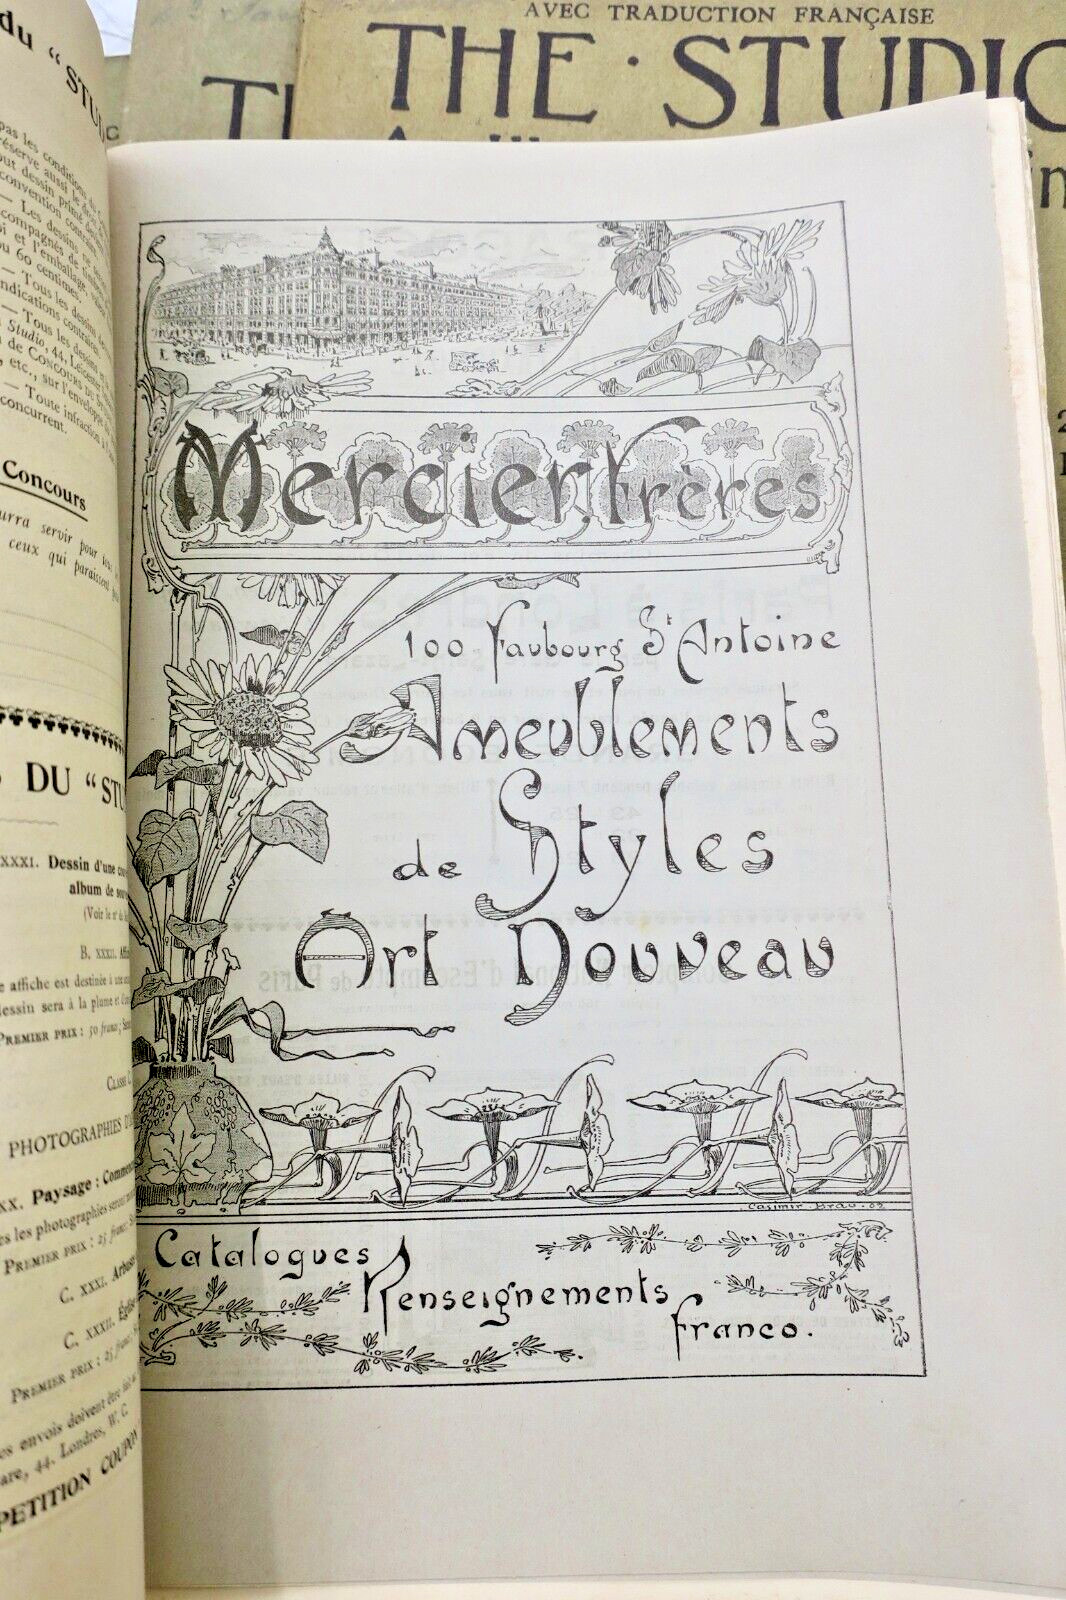 AVEC TRADUCTION FRANÇAISE
THE · STUDIO
du "STUD
pas les conditions du
réserve aussi le droit
out dessin primé
convention contraire
— Les dessins ne
compagnés de
si et l'emballage,
ou 60 centimes.
— Tous les
indications
— Tous les dessins
Studio, 44, Leicester
n de CONCOURS DU
, etc., sur l'enveloppe
— Toute infraction
concurrent.
Concours
urra servir pour
ceux qui paraissent
DU "STU
XXXI. Dessin d'une
album de
(Voir le
B. XXXII.
e affiche est destinée à une
dessin sera à la plume et
PREMIER PRIX : 50 francs ;
CLASSE C
PHOTOGRAPHIES
XX. Paysage :
es les photographies seront
PREMIER PRIX : 25 francs
C. XXXI.
C. XXXII. Église
PREMIER PRIX : 25 francs
es envois doivent être
are, 44, Londres, W. C.
PETITION COUPON
Mercier, frères
100 Faubourg St Antoine
Ameublements
de Styles
Art Nouveau
Casimir Brau. 02
Catalogues
Renseignements
franco.